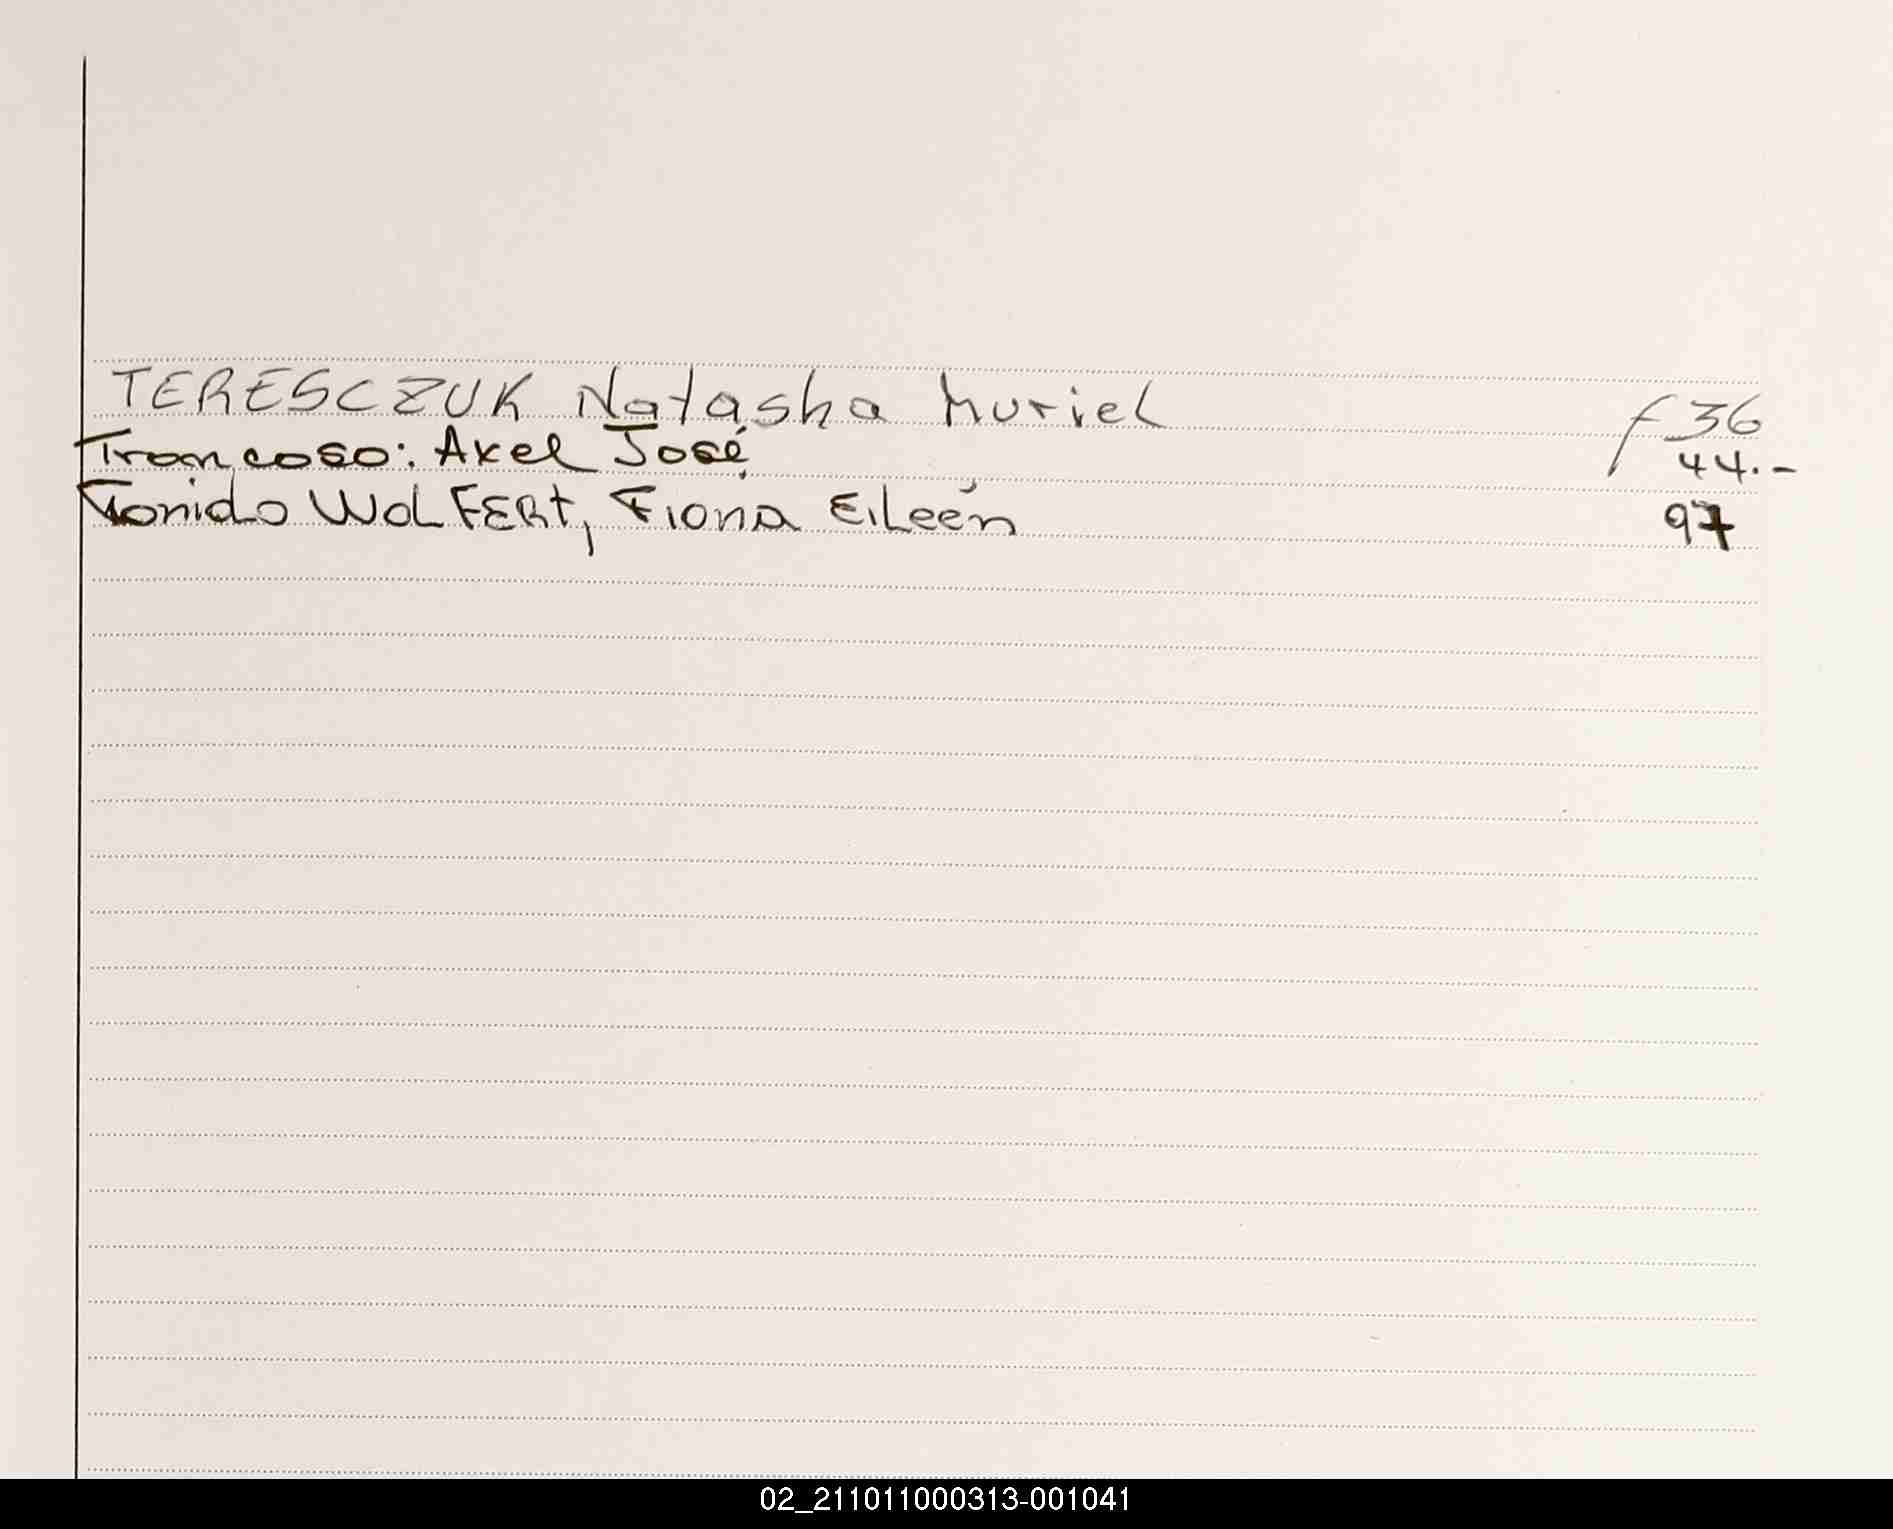 TERESCZUK Natasha Muriel f 36
Troncoso: Axel José 44.-
Tonido WOLFERt, Fiona Eileén 97
02_211011000313-001041